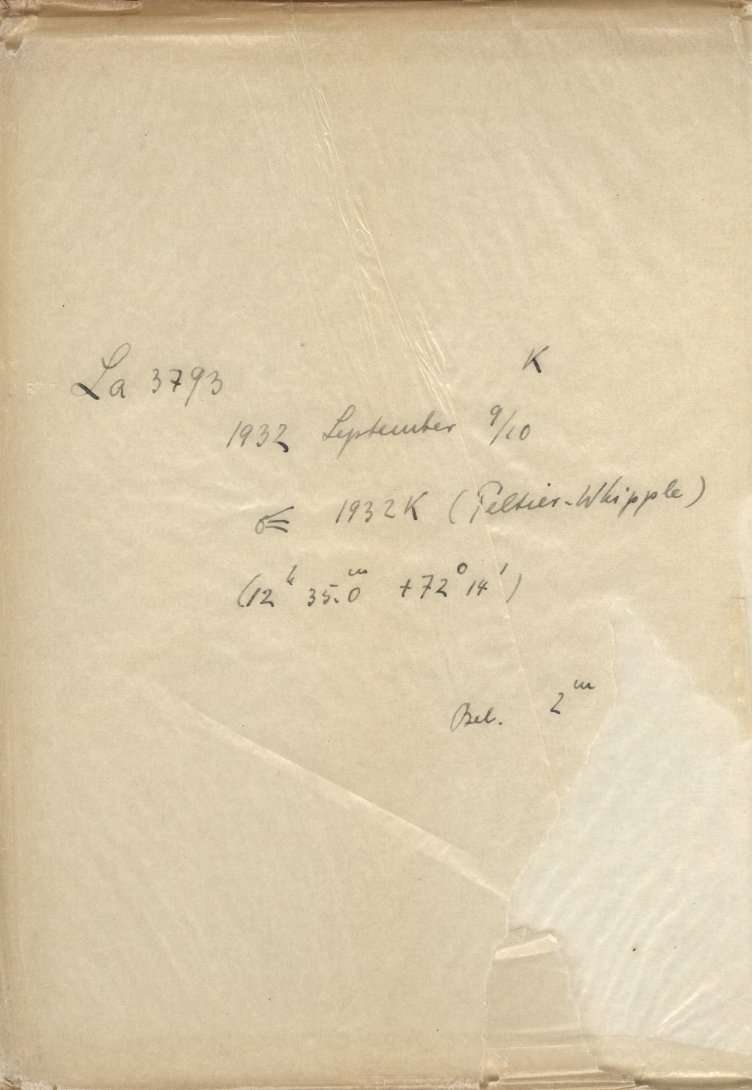 La 3793 K
1932 September 9/10
☄ 1932K (Peltier-Whipple)
(12ʰ 35.0ᵐ +72° 14')
Bel. 2ᵐ